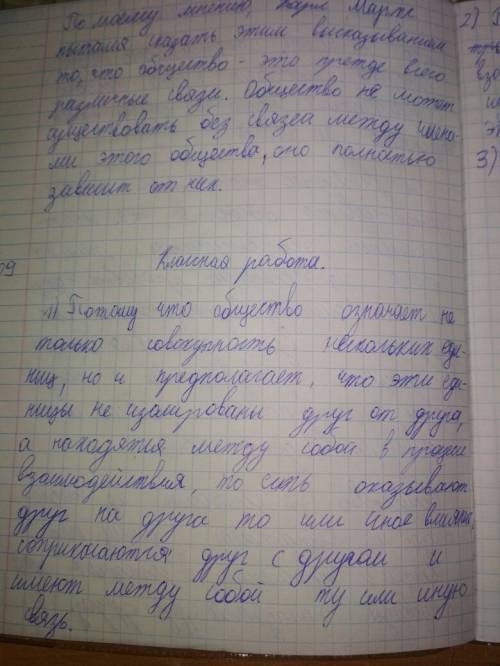 По моему мнению, Карл Маркс
пытался сказать этим высказыванием
то, что общество - это прежде всего
различные связи. Общество не может
существовать без связей между члена-
ми этого общества, оно полностью
зависит от них.
2)
3)
09
Классная работа.
1) Потому что общество означает не
только совокупность нескольких еди-
ниц, но и предполагает, что эти еди-
ницы не изолированы друг от друга,
а находятся между собой в процессе
взаимодействия, то есть оказывают
друг на друга то или иное влияние,
соприкасаются друг с другом и
имеют между собой ту или иную
связь.